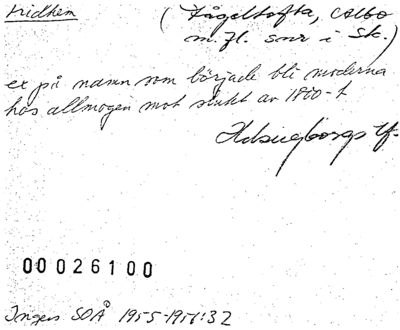 Fridhem
(Fågeltofta, Albo
m.fl. snr i Sk.)
ex på namn som började bli moderna
hos allmogen mot slutet av 1800-t
00026100
Ingers SOÅ 1955-1956:32